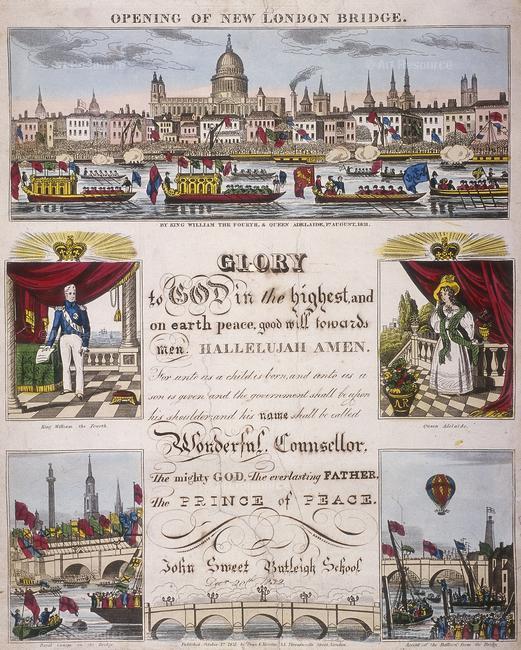 OPENING OF NEW LONDON BRIDGE.
© Art Resource
BY KING WILLIAM THE FOURTH, & QUEEN ADELAIDE, 1ST AUGUST, 1831.
GLORY
to GOD in the highest, and
on earth peace, good will towards
men. HALLELUJAH AMEN.
For unto us a child is born, and unto us a
son is given and the government shall be upon
his shoulder, and his name shall be called
Wonderful. Counsellor.
The mighty GOD. The everlasting FATHER.
The PRINCE of PEACE.
King William the Fourth.
Queen Adelaide.
AR
John Sweet Butleigh School
Decr 20th 1832
Royal Canopy on the Bridge.
Published, October 1831, by
Threadneedle Street, London.
Ascent of the Balloon from the Bridge.